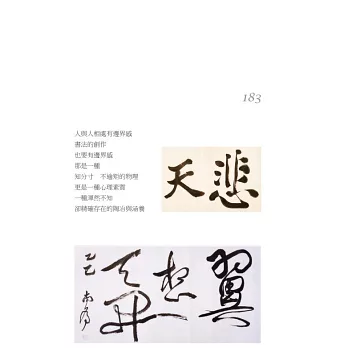 183
人與人相處有邊界感
書法的創作
也要有邊界感
那是一種
知分寸　不逾矩的物理
更是一種心理素質
一種渾然不知
卻精確存在的陶冶與涵養
悲天
翼想